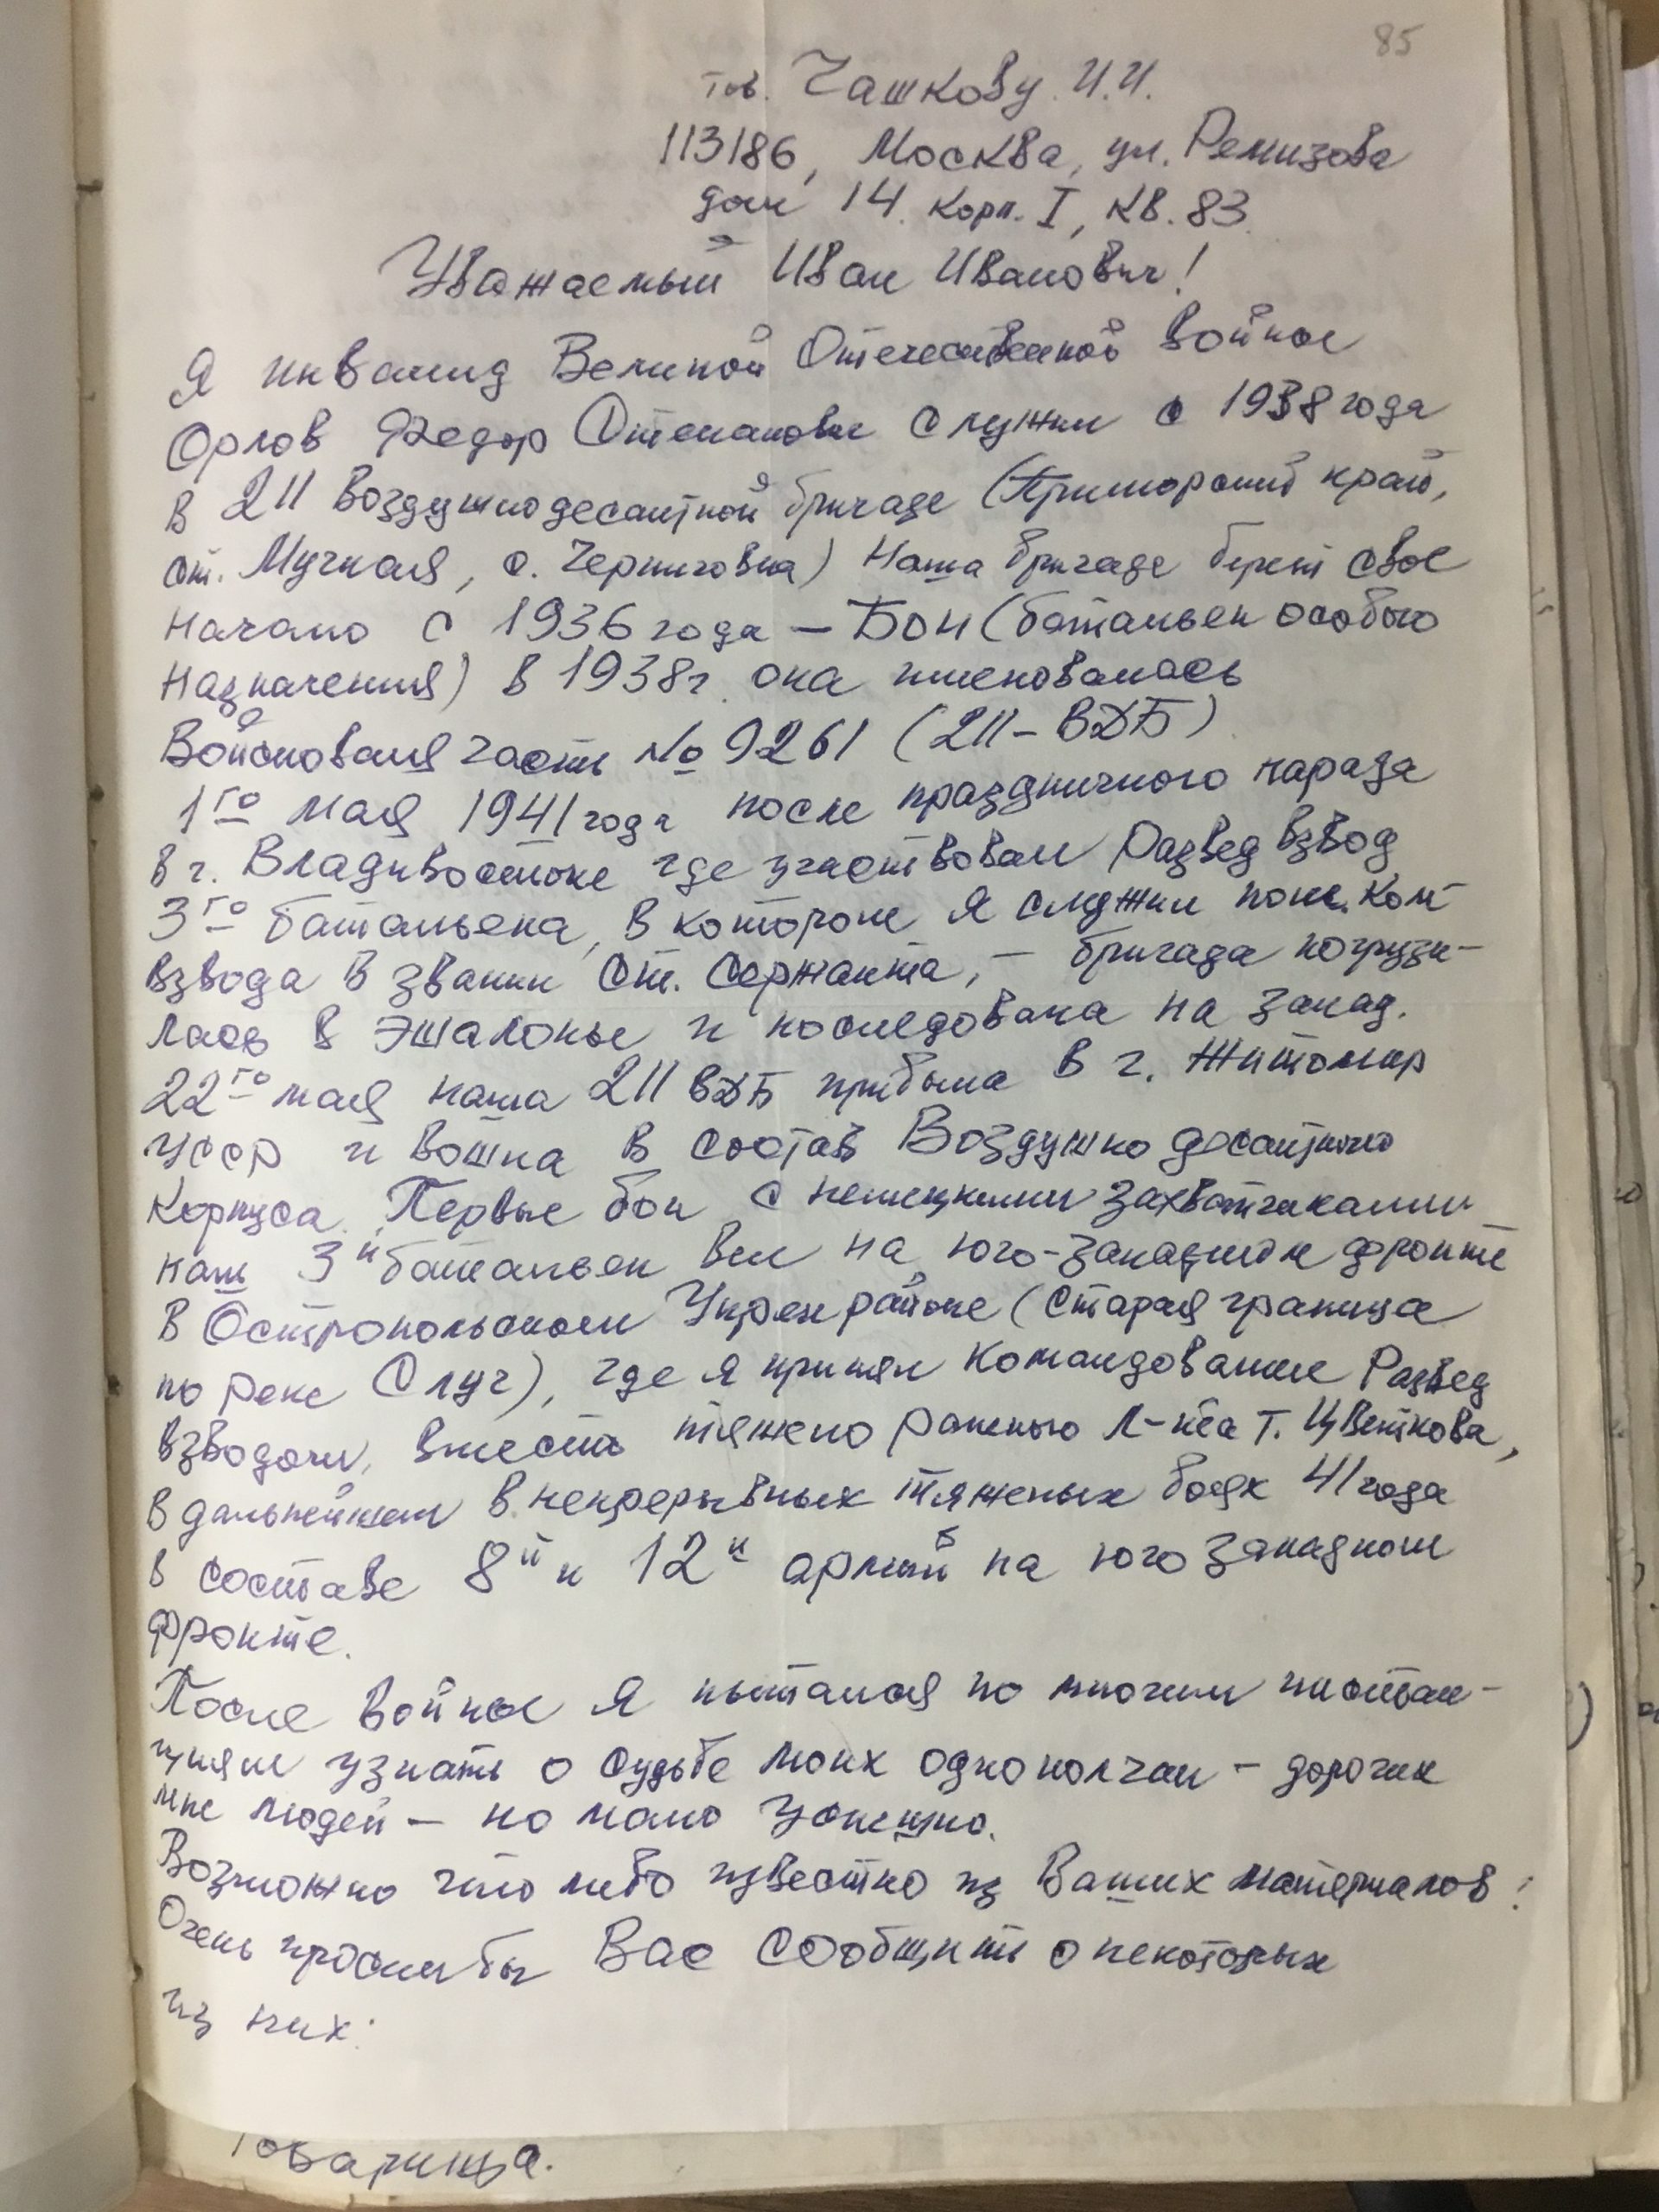 85
тов. Чашкову И.И.
113186, Москва, ул. Ремизова
дом 14 корп. I, кв. 83
Уважаемый Иван Иванович!
Я инвалид Великой Отечественной войны
Орлов Федор Степанович служил с 1938 года
в 211 воздушнодесантной бригаде (Приморский край,
ст. Мучная, с. Черниговка) Наша бригаде берет свое
начало с 1936 года – БОН (батальен особого
назначения) в 1938г. она именовалась
Войсковая часть № 9261 (211-ВДБ)
1го мая 1941 года после праздничного парада
в г. Владивостоке где участвовал Развед взвод
3го батальена, в котором я служил пом. ком
взвода в звании Ст. Сержанта, – бригада погрузи-
лась в эшалоны и последовала на запад.
22го мая наша 211 ВДБ прибыла в г. Житомир
УССР и вошла в состав Воздушно десантного
Корпуса. Первые бои с немецкими захватчиками
наш 3й батальен вел на юго-западном фронте
в Остропольском Укрепрайоне (старая граница
по реке Случ), где я принял командование Развед
взводом, вместо тяжело раненого л-нта т. Цветкова,
в дальнейшем в непрерывных тяжелых боях 41 года
в составе 8й и 12й армий на юго западном
фронте.
После войны я пытался по многим инстан-
циям узнать о судьбе моих однополчан – дорогих
мне людей – но мало успешно.
Возможно что либо известно из Ваших материалов!
Очень просил бы Вас сообщить о некоторых
из них:
товарища.